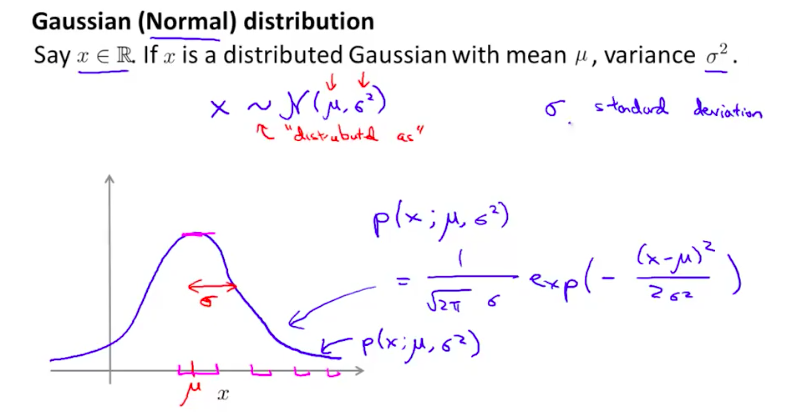 Gaussian (Normal) distribution
Say x ∈ ℝ. If x is a distributed Gaussian with mean μ, variance σ².
x ~ N(μ, σ²)
"distributed as"
σ. standard deviation
p(x; μ, σ²)
= 1/(√2π σ) exp(- (x-μ)²/2σ²)
σ
p(x; μ, σ²)
μ x